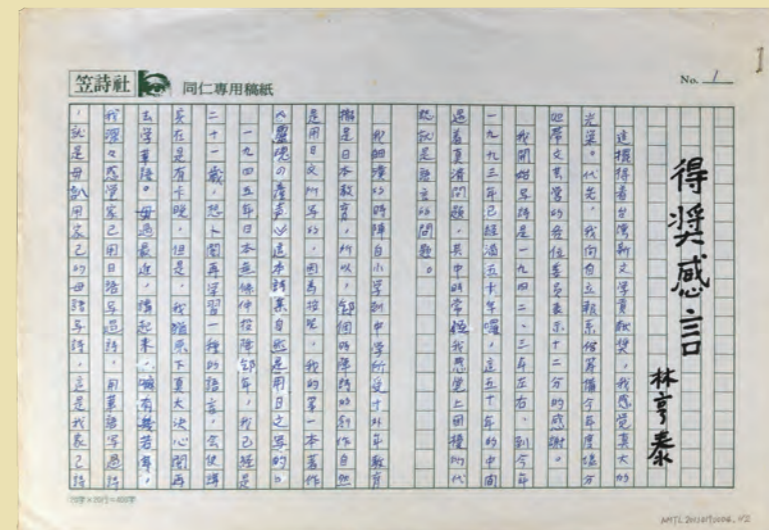 笠詩社 同仁專用稿紙
No. 1
1
得獎感言
林亨泰
這擺得着台灣新文學貢獻獎，我感覺真大的
光榮。代先，我向自立報系佮籌備今年度塩分
地帶文藝營的各位委員表示十二分的感謝。
我開始写詩是一九四二、三年左右，到今年
一九九三年已經過五十年囉，這五十年的中間
過着真濟問題，其中時常使我感覺上困擾的代
誌就是語言的問題。
我細漢的時陣自小学到中学所受十外年教育
攏是日本教育，所以，卻個時陣詩的創作自然
是用日文所写的，因為按呢，我的第一本著作
《靈魂の產声》這本詩集自然是用日文寫的。
一九四五年日本無條件投降卻年，我已經是
二十一歲，想卜閣再学習一種的語言，会使講
实在是有卡晚，但是，我猶原下真大决心閣再
去学華語。毋過最近，講起來，嘛有幾若年，
我漫々感覺家己用日語写過詩，用華語写過詩
，就是毋訓用家己的母語写詩，這是我家己詩
20字×20行=400字
NMTL20120190006.02